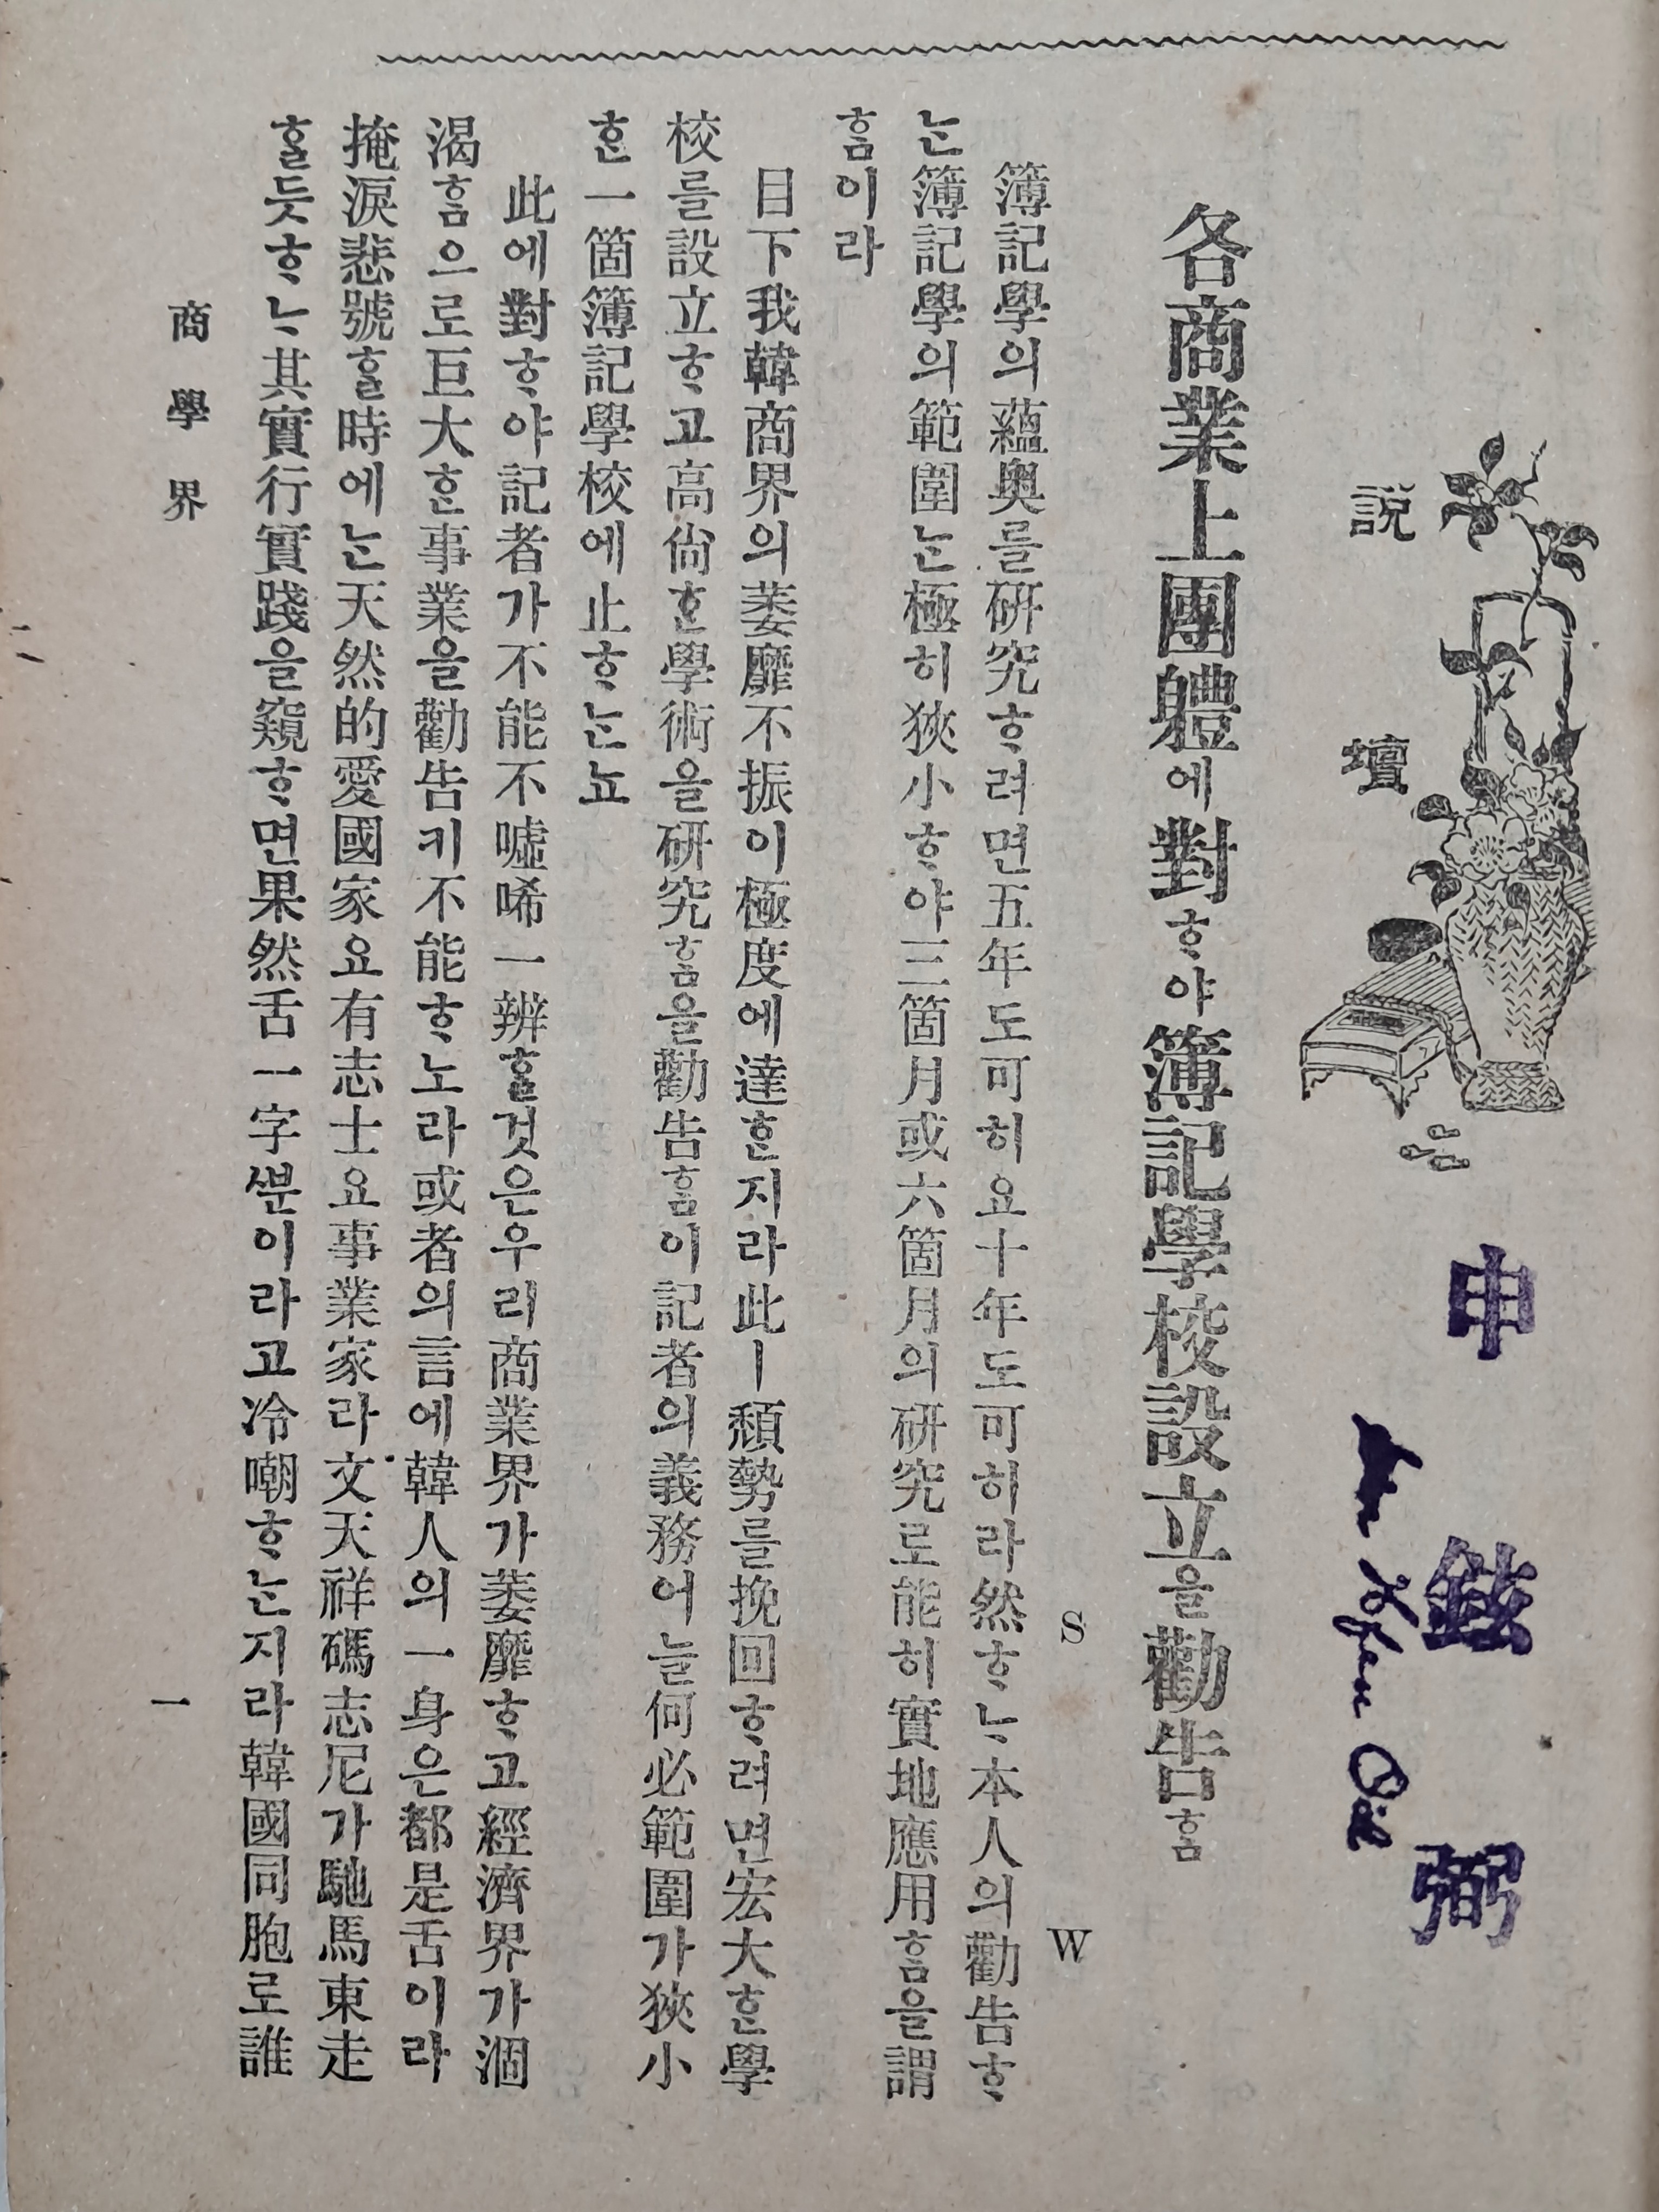 說壇
申鉉弼
各商業上團體에對ᄒᆞ야簿記學校設立을勸告홈
S W
簿記學의蘊奧를硏究ᄒᆞ려면五年도可히요十年도可히라然ᄒᆞᄂᆞ本人의勸告ᄒᆞ
ᄂᆞᆫ簿記學의範圍ᄂᆞᆫ極히狹小ᄒᆞ야三箇月或六箇月의硏究로能히實地應用ᄒᆞᆷ을謂
ᄒᆞᆷ이라
目下我韓商界의萎靡不振이極度에達ᄒᆞᆫ지라此ㅣ頹勢를挽回ᄒᆞ려면宏大ᄒᆞᆫ學
校를設立ᄒᆞ고高尙ᄒᆞᆫ學術을硏究ᄒᆞᆷ을勸告ᄒᆞᆷ이記者의義務어늘何必範圍가狹小
ᄒᆞᆫ一箇簿記學校에止ᄒᆞᄂᆞᆫ뇨
此에對ᄒᆞ야記者가不能不噓唏一辨ᄒᆞᆯ것은우리商業界가萎靡ᄒᆞ고經濟界가涸
渴ᄒᆞᆷ으로巨大ᄒᆞᆫ事業을勸告키不能ᄒᆞ노라或者의言에韓人의一身은都是舌이라
掩淚悲號ᄒᆞᆯ時에ᄂᆞᆫ天然的愛國家요有志士요事業家라文天祥瑪志尼가馳馬東走
ᄒᆞᆯ듯ᄒᆞᄂᆞ其實行實踐을窺ᄒᆞ면果然舌一字ᄲᅮᆫ이라고冷嘲ᄒᆞᄂᆞᆫ지라韓國同胞로誰
商學界
一